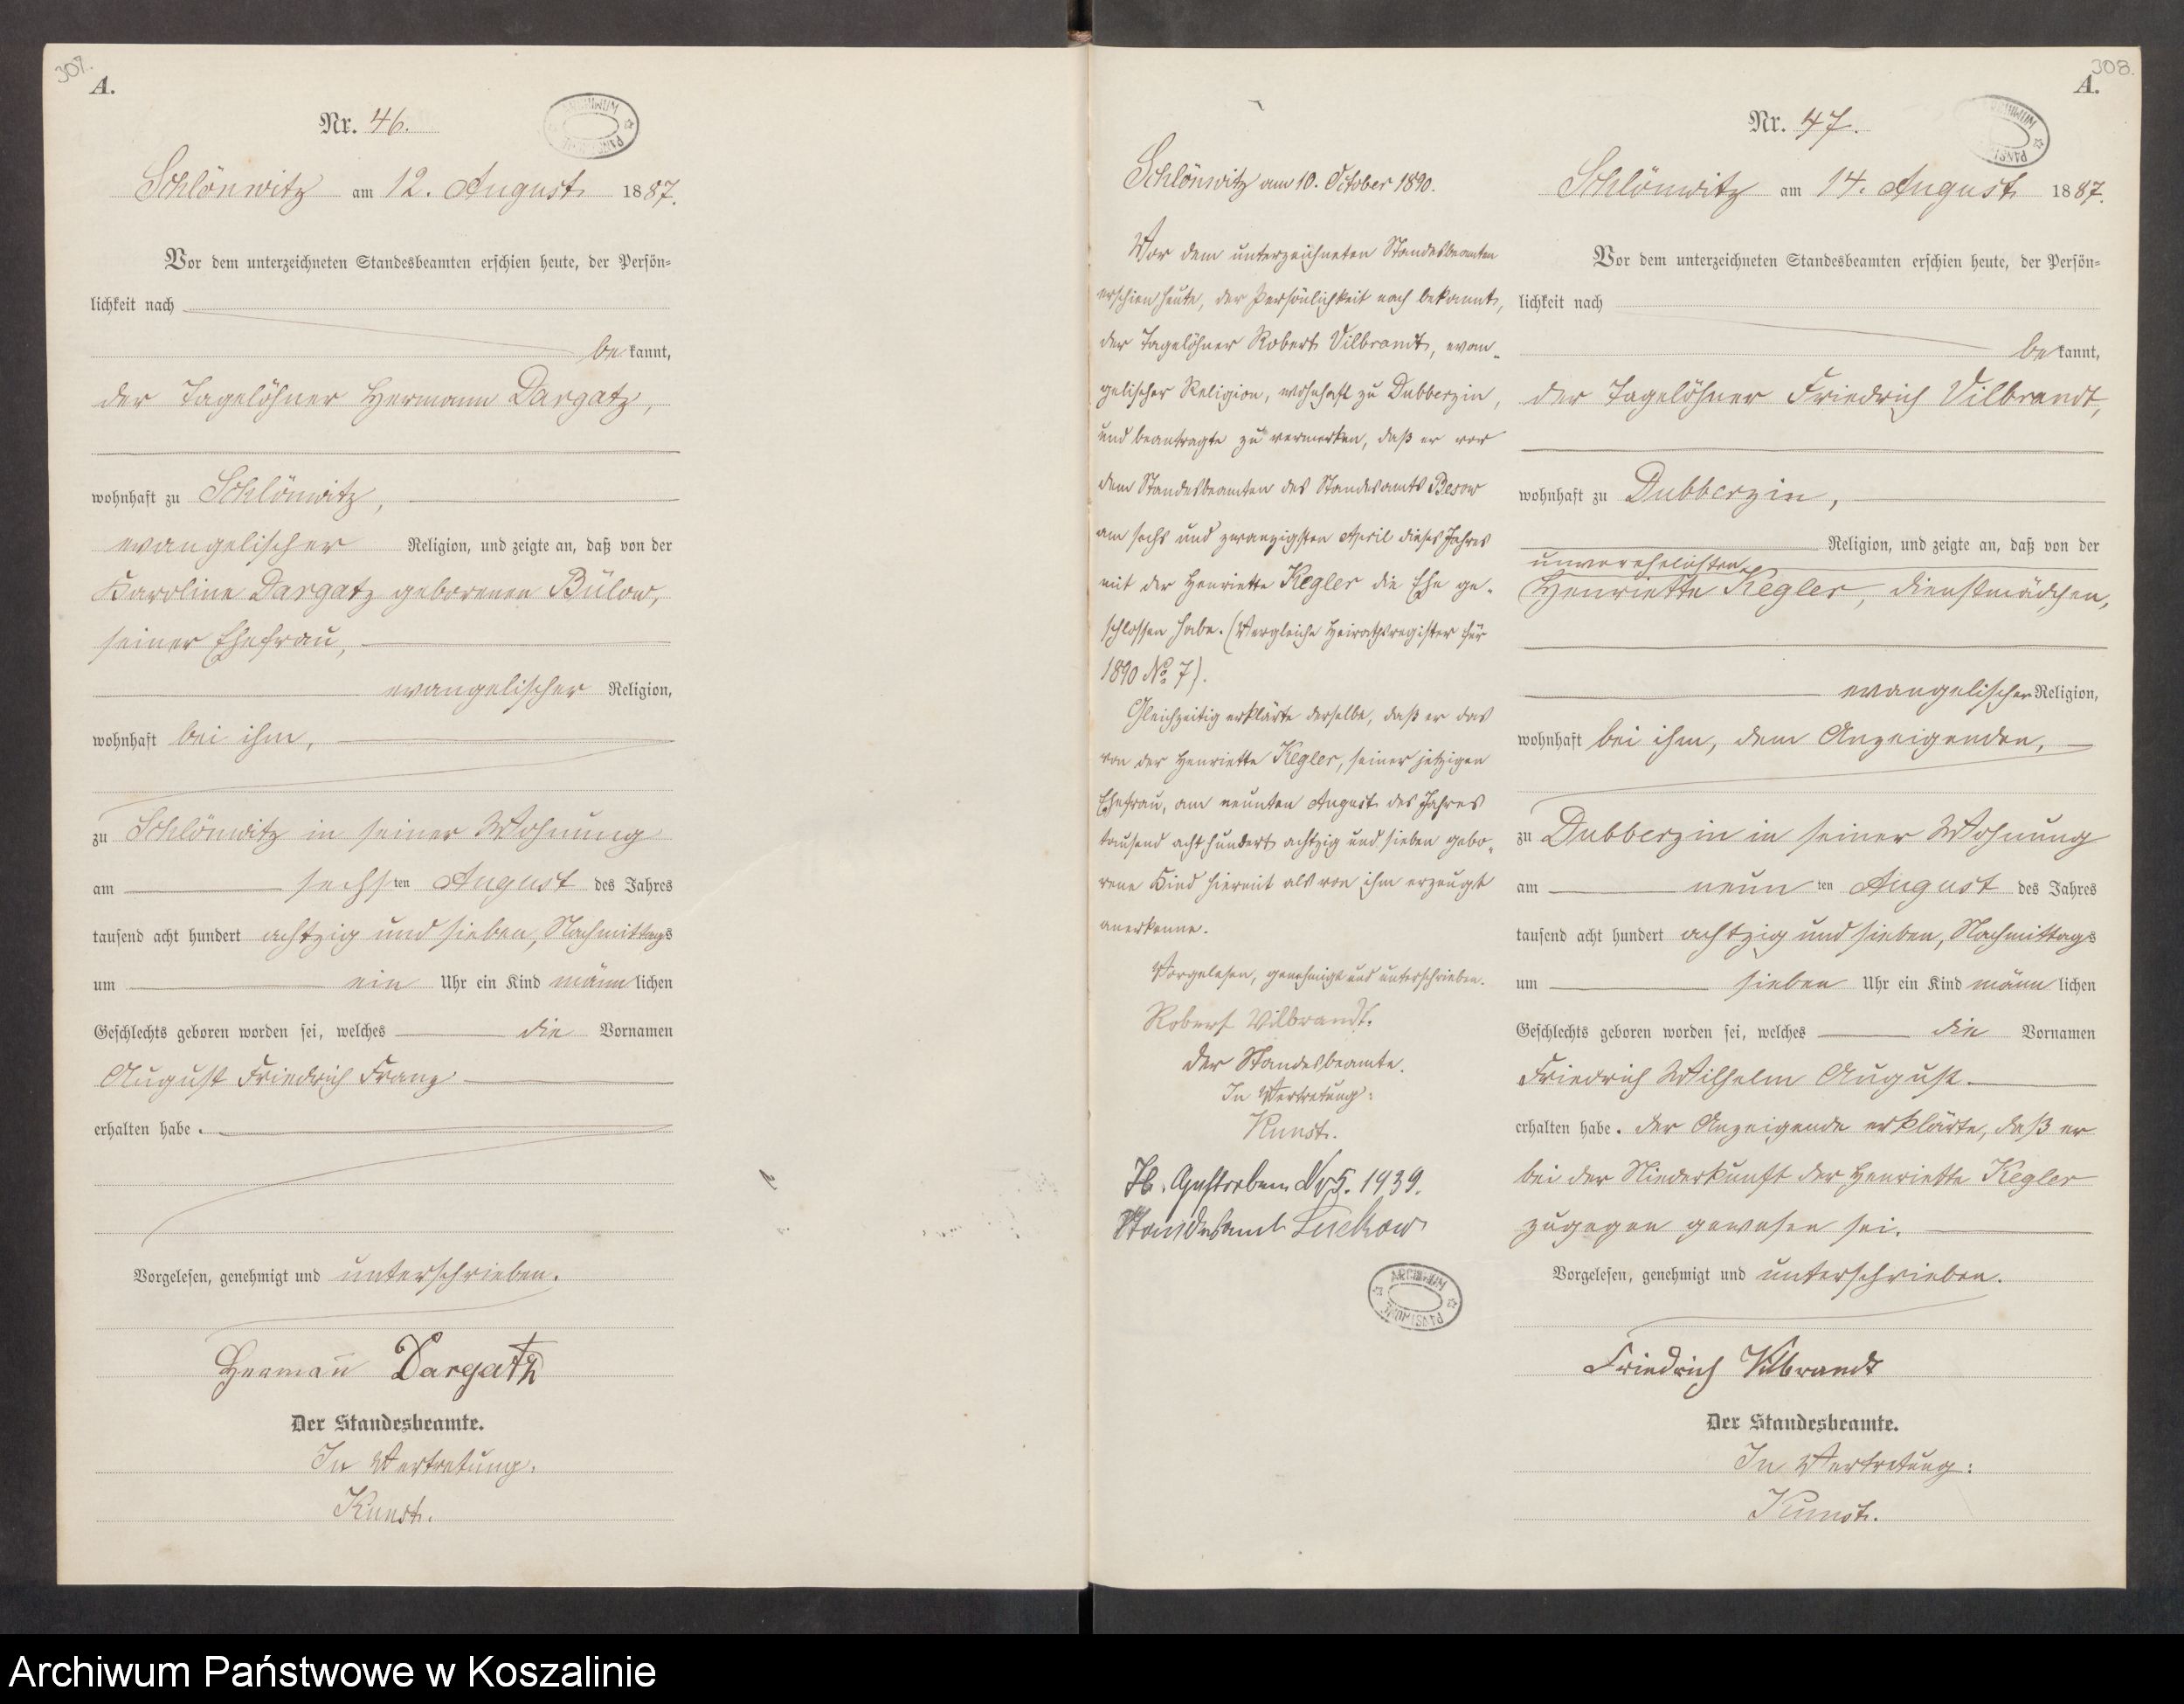 307.
A.
Nr. 46.
ARCHIWUM PAŃSTWOWE
Schlönwitz am 12. August 1887.
Vor dem unterzeichneten Standesbeamten erschien heute, der Persön-
lichkeit nach
be kannt,
der Tagelöhner Hermann Dargatz,
wohnhaft zu Schlönwitz,
evangelischer Religion, und zeigte an, daß von der
Karoline Dargatz geborenen Bülow,
seiner Ehefrau,
evangelischer Religion,
wohnhaft bei ihm,
zu Schlönwitz in seiner Wohnung
am sechsten August des Jahres
tausend acht hundert achtzig und sieben, Nachmittags
um ein Uhr ein Kind männlichen
Geschlechts geboren worden sei, welches die Vornamen
August Friedrich Franz
erhalten habe.
Vorgelesen, genehmigt und unterschrieben.
Hermañ Dargatz
Der Standesbeamte.
In Vertretung.
Kunst.
Schlönwitz am 10. October 1890.
Vor dem unterzeichneten Standesbeamten
erschien heute, der Persönlichkeit nach bekannt,
der Tagelöhner Robert Vilbrandt, evan-
gelischer Religion, wohnhaft zu Dubberzin,
und beantragte zu vermerken, daß er vor
dem Standesbeamten des Standesamts Besow
am sechs und zwanzigsten April dieses Jahres
mit der Henriette Kegler die Ehe ge-
schlossen habe. (Vergleiche Heirathsregister für
1890 No. 7).
Gleichzeitig erklärte derselbe, daß er das
von der Henriette Kegler, seiner jetzigen
Ehefrau, am neunten August des Jahres
tausend acht hundert achtzig und sieben gebo-
rene Kind hiermit als von ihm erzeugt
anerkenne.
Vorgelesen, genehmigt und unterschrieben.
Robert Vilbrandt.
Der Standesbeamte.
In Vertretung:
Kunst.
Gestorben Nr. 5. 1939.
Standesamt
ARCHIWUM PAŃSTWOWE
308.
A.
Nr. 47.
ARCHIWUM PAŃSTWOWE
Schlönwitz am 14. August 1887.
Vor dem unterzeichneten Standesbeamten erschien heute, der Persön-
lichkeit nach
be kannt,
der Tagelöhner Friedrich Vilbrandt,
wohnhaft zu Dubberzin,
Religion, und zeigte an, daß von der
unverehelichten
Henriette Kegler, Dienstmädchen,
evangelischer Religion,
wohnhaft bei ihm, dem Anzeigenden,
zu Dubberzin in seiner Wohnung
am neunten August des Jahres
tausend acht hundert achtzig und sieben, Nachmittags
um sieben Uhr ein Kind männlichen
Geschlechts geboren worden sei, welches die Vornamen
Friedrich Wilhelm August
erhalten habe. Der Anzeigende erklärte, daß er
bei der Niederkunft der Henriette Kegler
zugegen gewesen sei.
Vorgelesen, genehmigt und unterschrieben.
Friedrich Vilbrandt
Der Standesbeamte.
In Vertretung:
Kunst.
Archiwum Państwowe w Koszalinie